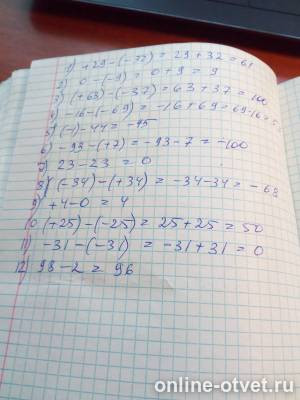 1) +29-(-32) = 29+32 = 61
2) 0-(-9) = 0+9 = 9
3) (+63)-(-37) = 63+37 = 100
4) -16-(-69) = -16+69 = 69-16 =
5) (-1)-44 = -45
6) -93-(+7) = -93-7 = -100
7) 23-23 = 0
8) (-34)-(+34) = -34-34 = -68
9) +4-0 = 4
10 (+25)-(-25) = 25+25 = 50
11) -31-(-31) = -31+31 = 0
12) 98-2 = 96
online-otvet.ru